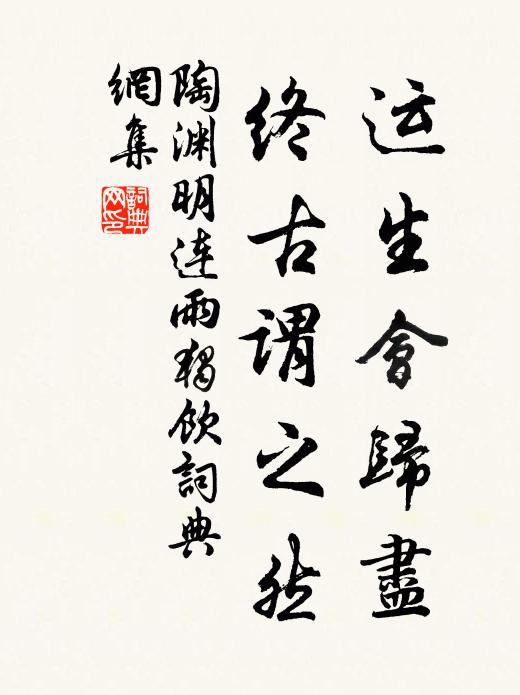 运生會歸盡
終古謂之然
陶渊明连雨獨飲詞典
網集
詞典
网印